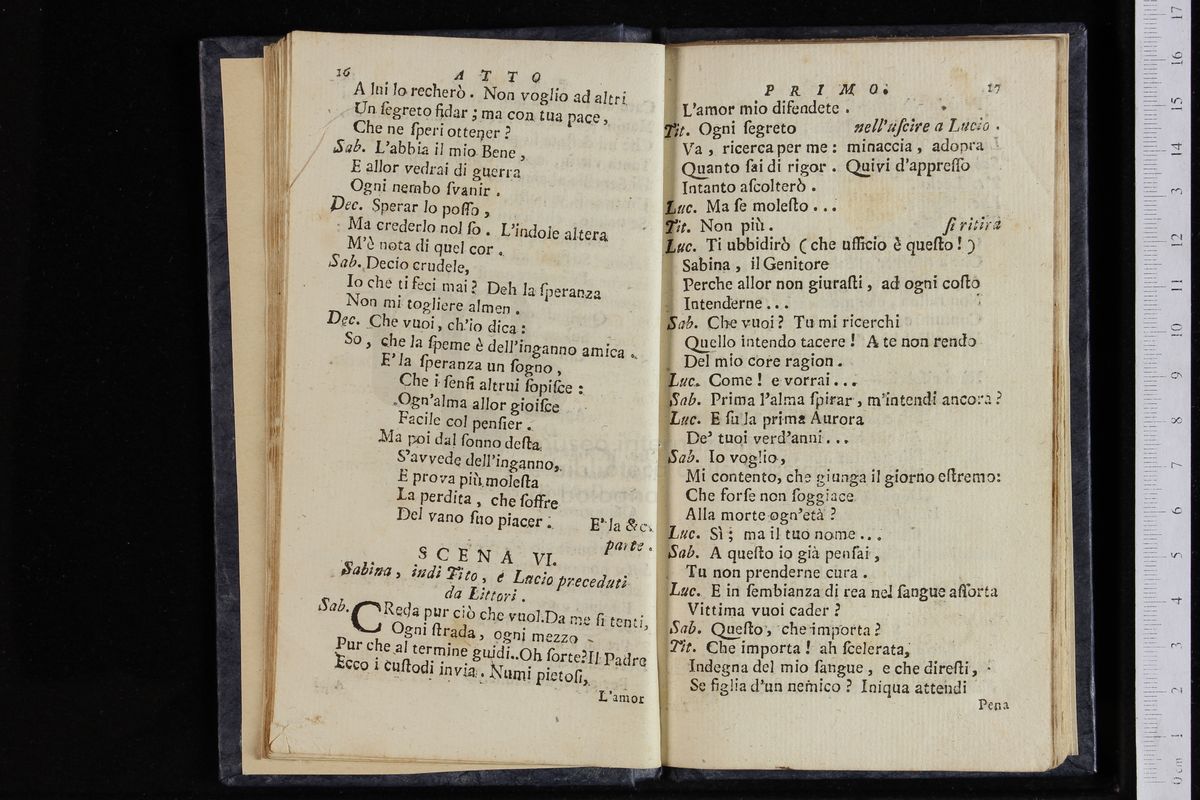 16 ATTO
A lui lo recherò. Non voglio ad altri
Un ſegreto fidar; ma con tua pace,
Che ne ſperi ottener?
Sab. L'abbia il mio Bene,
E allor vedrai di guerra
Ogni nembo ſvanir.
Dec. Sperar lo poſſo,
Ma crederlo nol ſo. L'indole altera
M'è nota di quel cor.
Sab. Decio crudele,
Io che ti feci mai? Deh la ſperanza
Non mi togliere almen.
Dec. Che vuoi, ch'io dica:
So, che la ſpeme è dell'inganno amica.
E' la ſperanza un ſogno,
Che i ſenſi altrui ſopiſce:
Ogn'alma allor gioiſce
Facile col penſier.
Ma poi dal ſonno deſta
S'avvede dell'inganno,
E prova più moleſta
La perdita, che ſoffre
Del vano ſuo piacer. E' la &c.
parte.
SCENA VI.
Sabina, indi Tito, e Lucio preceduti
da Littori.
Sab. CReda pur ciò che vuol. Da me ſi tenti,
Ogni ſtrada, ogni mezzo
Pur che al termine guidi..Oh ſorte? Il Padre
Ecco i cuſtodi invia. Numi pietoſi,
L'amor
PRIMO. 17
L'amor mio difendete.
Tit. Ogni ſegreto nell'uſcire a Lucio.
Va, ricerca per me: minaccia, adopra
Quanto ſai di rigor. Quivi d'appreſſo
Intanto aſcolterò.
Luc. Ma ſe moleſto...
Tit. Non più. ſi ritira
Luc. Ti ubbidirò (che ufficio è queſto!)
Sabina, il Genitore
Perche allor non giuraſti, ad ogni coſto
Intenderne...
Sab. Che vuoi? Tu mi ricerchi
Quello intendo tacere! A te non rendo
Del mio core ragion.
Luc. Come! e vorrai...
Sab. Prima l'alma ſpirar, m'intendi ancora?
Luc. E ſu la prima Aurora
De' tuoi verd'anni...
Sab. Io voglio,
Mi contento, che giunga il giorno eſtremo:
Che forſe non ſoggiace
Alla morte ogn'età?
Luc. Sì; ma il tuo nome...
Sab. A queſto io già penſai,
Tu non prenderne cura.
Luc. E in ſembianza di rea nel ſangue aſſorta
Vittima vuoi cader?
Sab. Queſto, che importa?
Tit. Che importa! ah ſcelerata,
Indegna del mio ſangue, e che direſti,
Se figlia d'un nemico? Iniqua attendi
Pena
0 cm 1 2 3 4 5 6 7 8 9 10 11 12 13 14 15 16 17